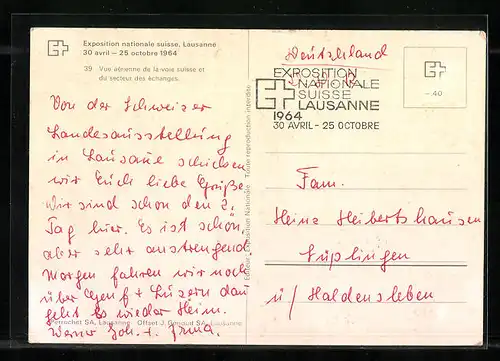 Exposition nationale suisse, Lausanne
30 avril — 25 octobre 1964
39 Vue aérienne de la voie suisse et
du secteur des échanges.
Von der Schweizer
Landesausstellung
in Lausane schicken
wir Euch liebe Grüße.
Wir sind schon den 2.
Tag hier. Es ist schön,
aber sehr anstrengend.
Morgen fahren wir noch
über Genf + Luzern dan
geht es wieder Heim.
Werner Joh. + Irma.
Perrochet SA, Lausanne Offset J. SA, Lausanne
Exposition Nationale Toute reproduction interdite
Deutschland
EXPOSITION
NATIONALE
SUISSE
LAUSANNE
1964
30 AVRIL - 25 OCTOBRE
-.40
Fam.
Heinz Heibertshausen
Süplingen
ü/ Haldensleben